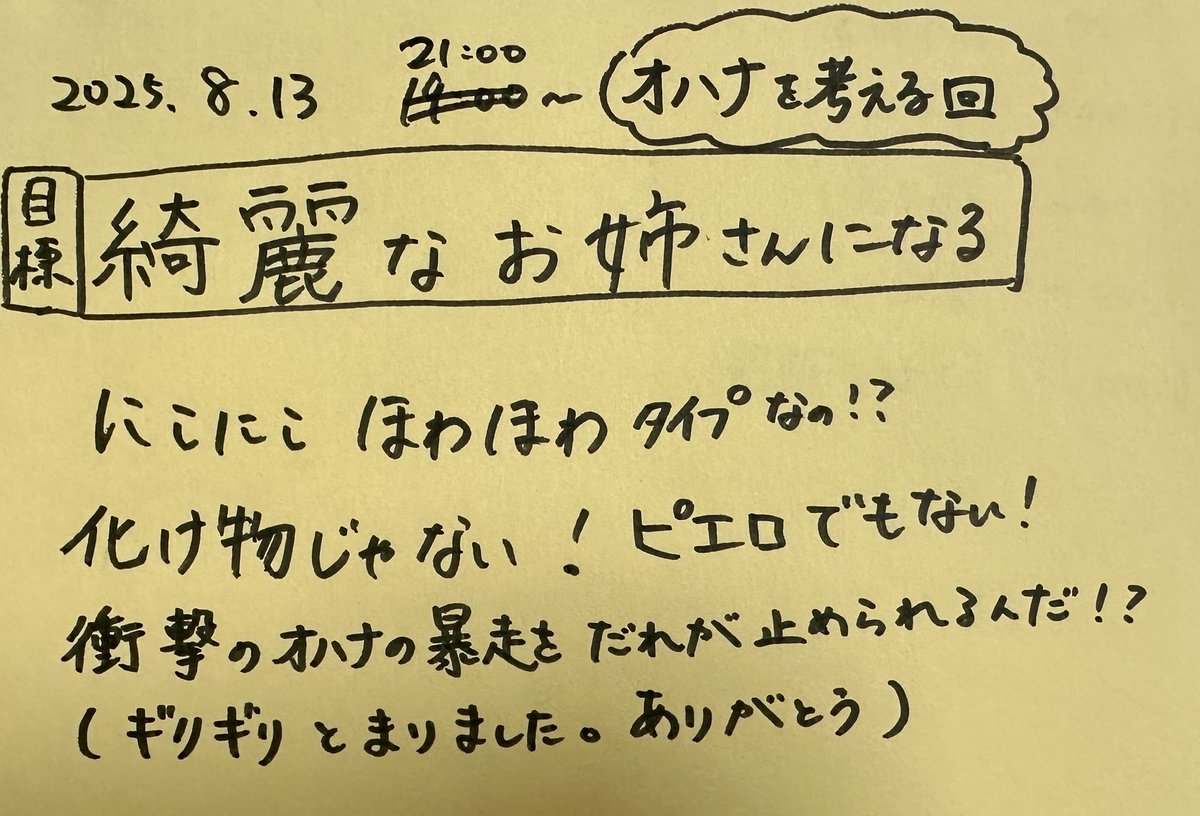 2025. 8. 13 21:00～ オハナを考える回
目標 綺麗なお姉さんになる
にこにこ ほわほわ タイプなの!?
化け物じゃない! ピエロでもない!
衝撃のオハナの暴走をだれが止められるんだ!?
(ギリギリとまりました。ありがとう)